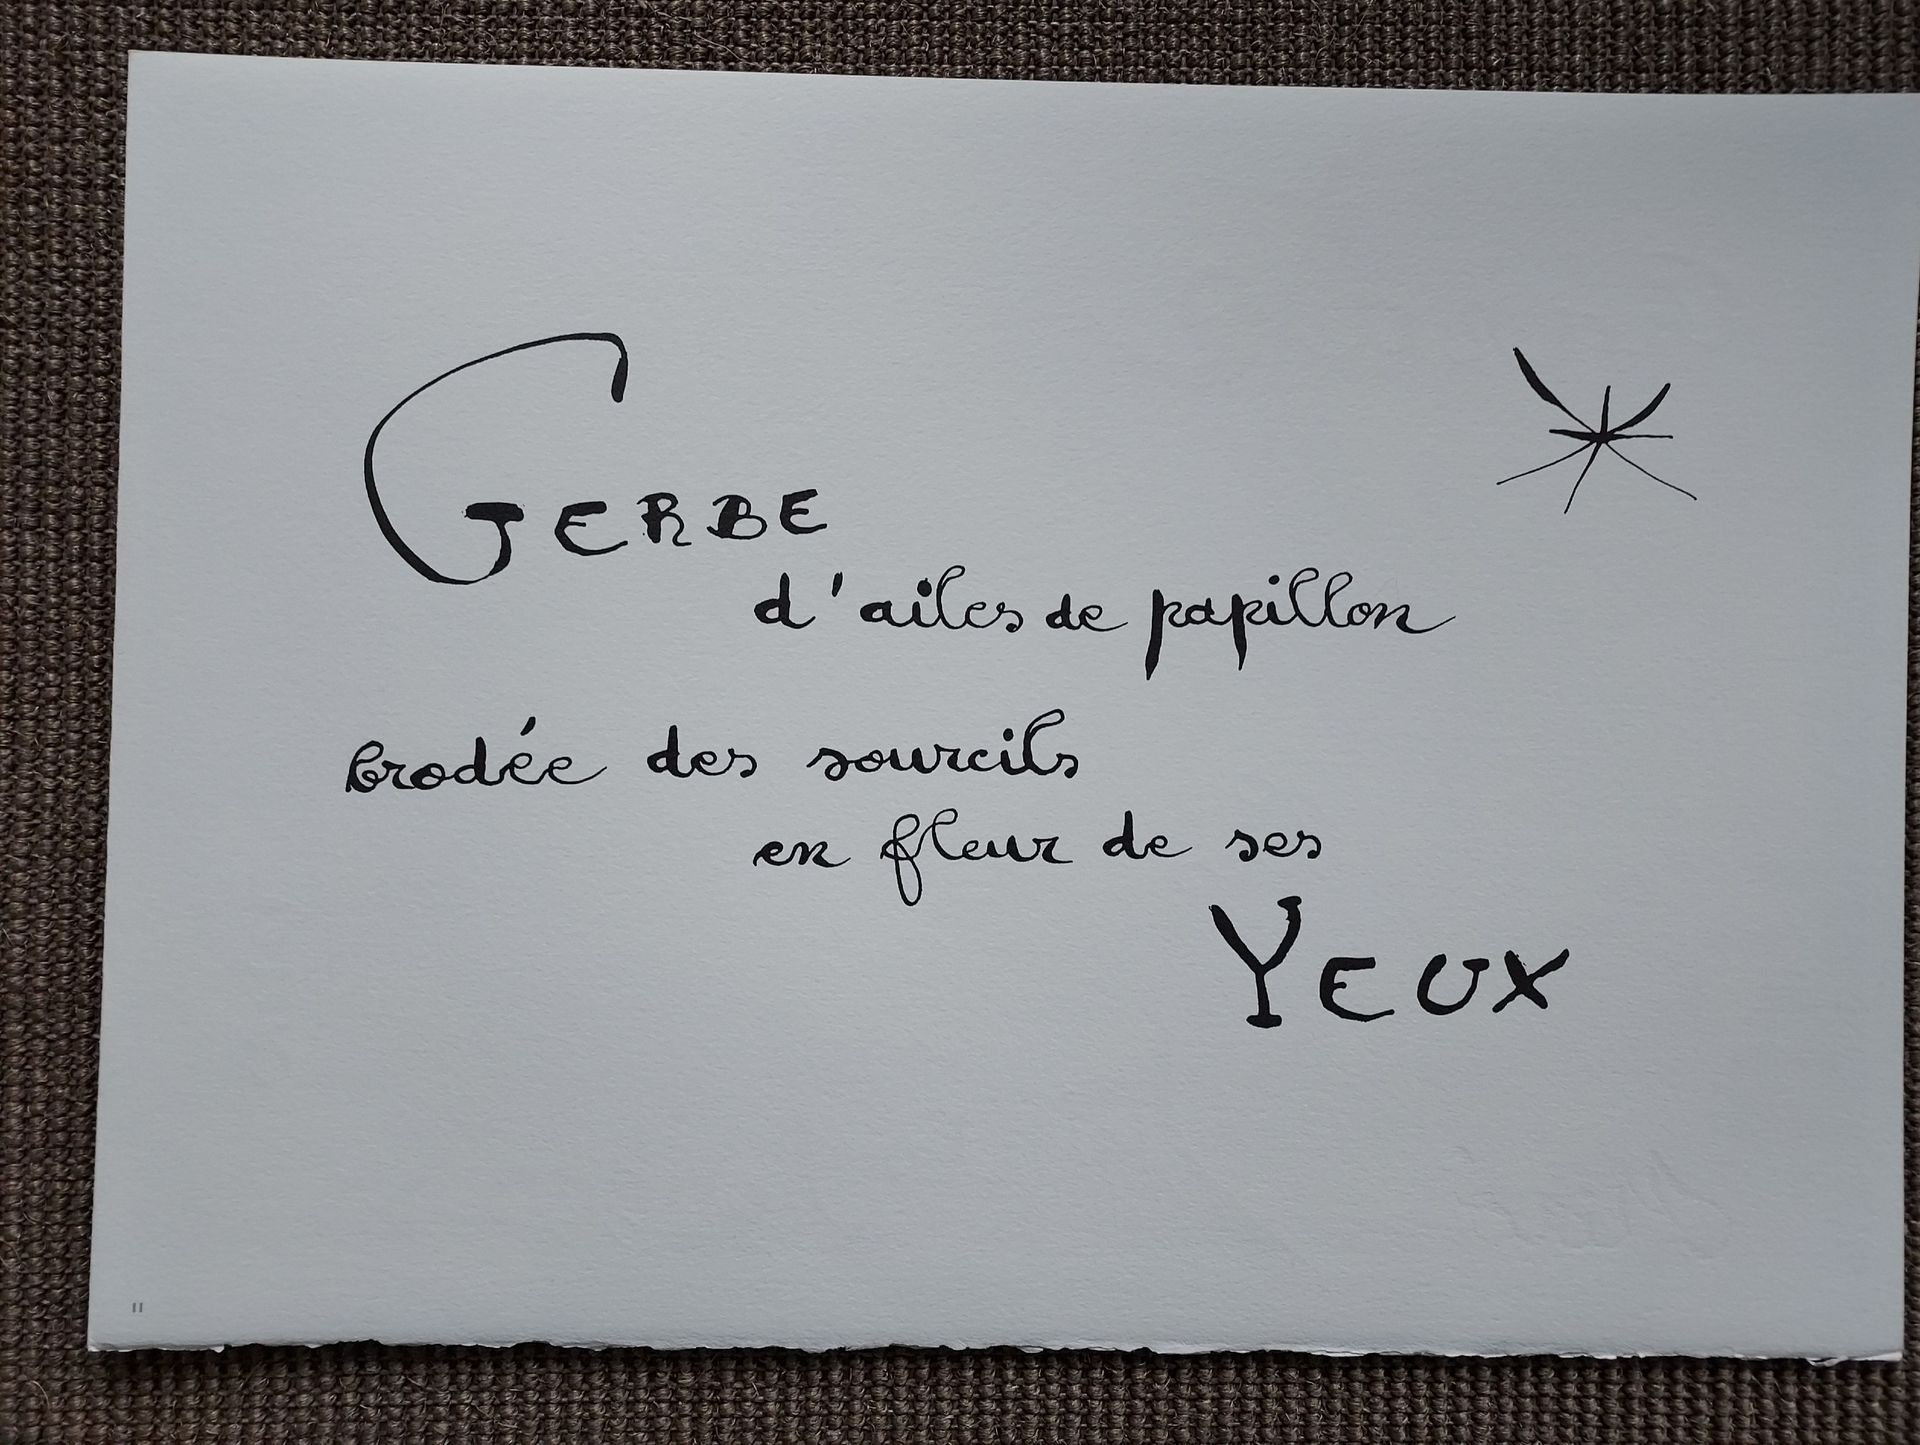 GERBE
d'ailes de papillon
brodée des sourcils
en fleur de ses
YEUX
11